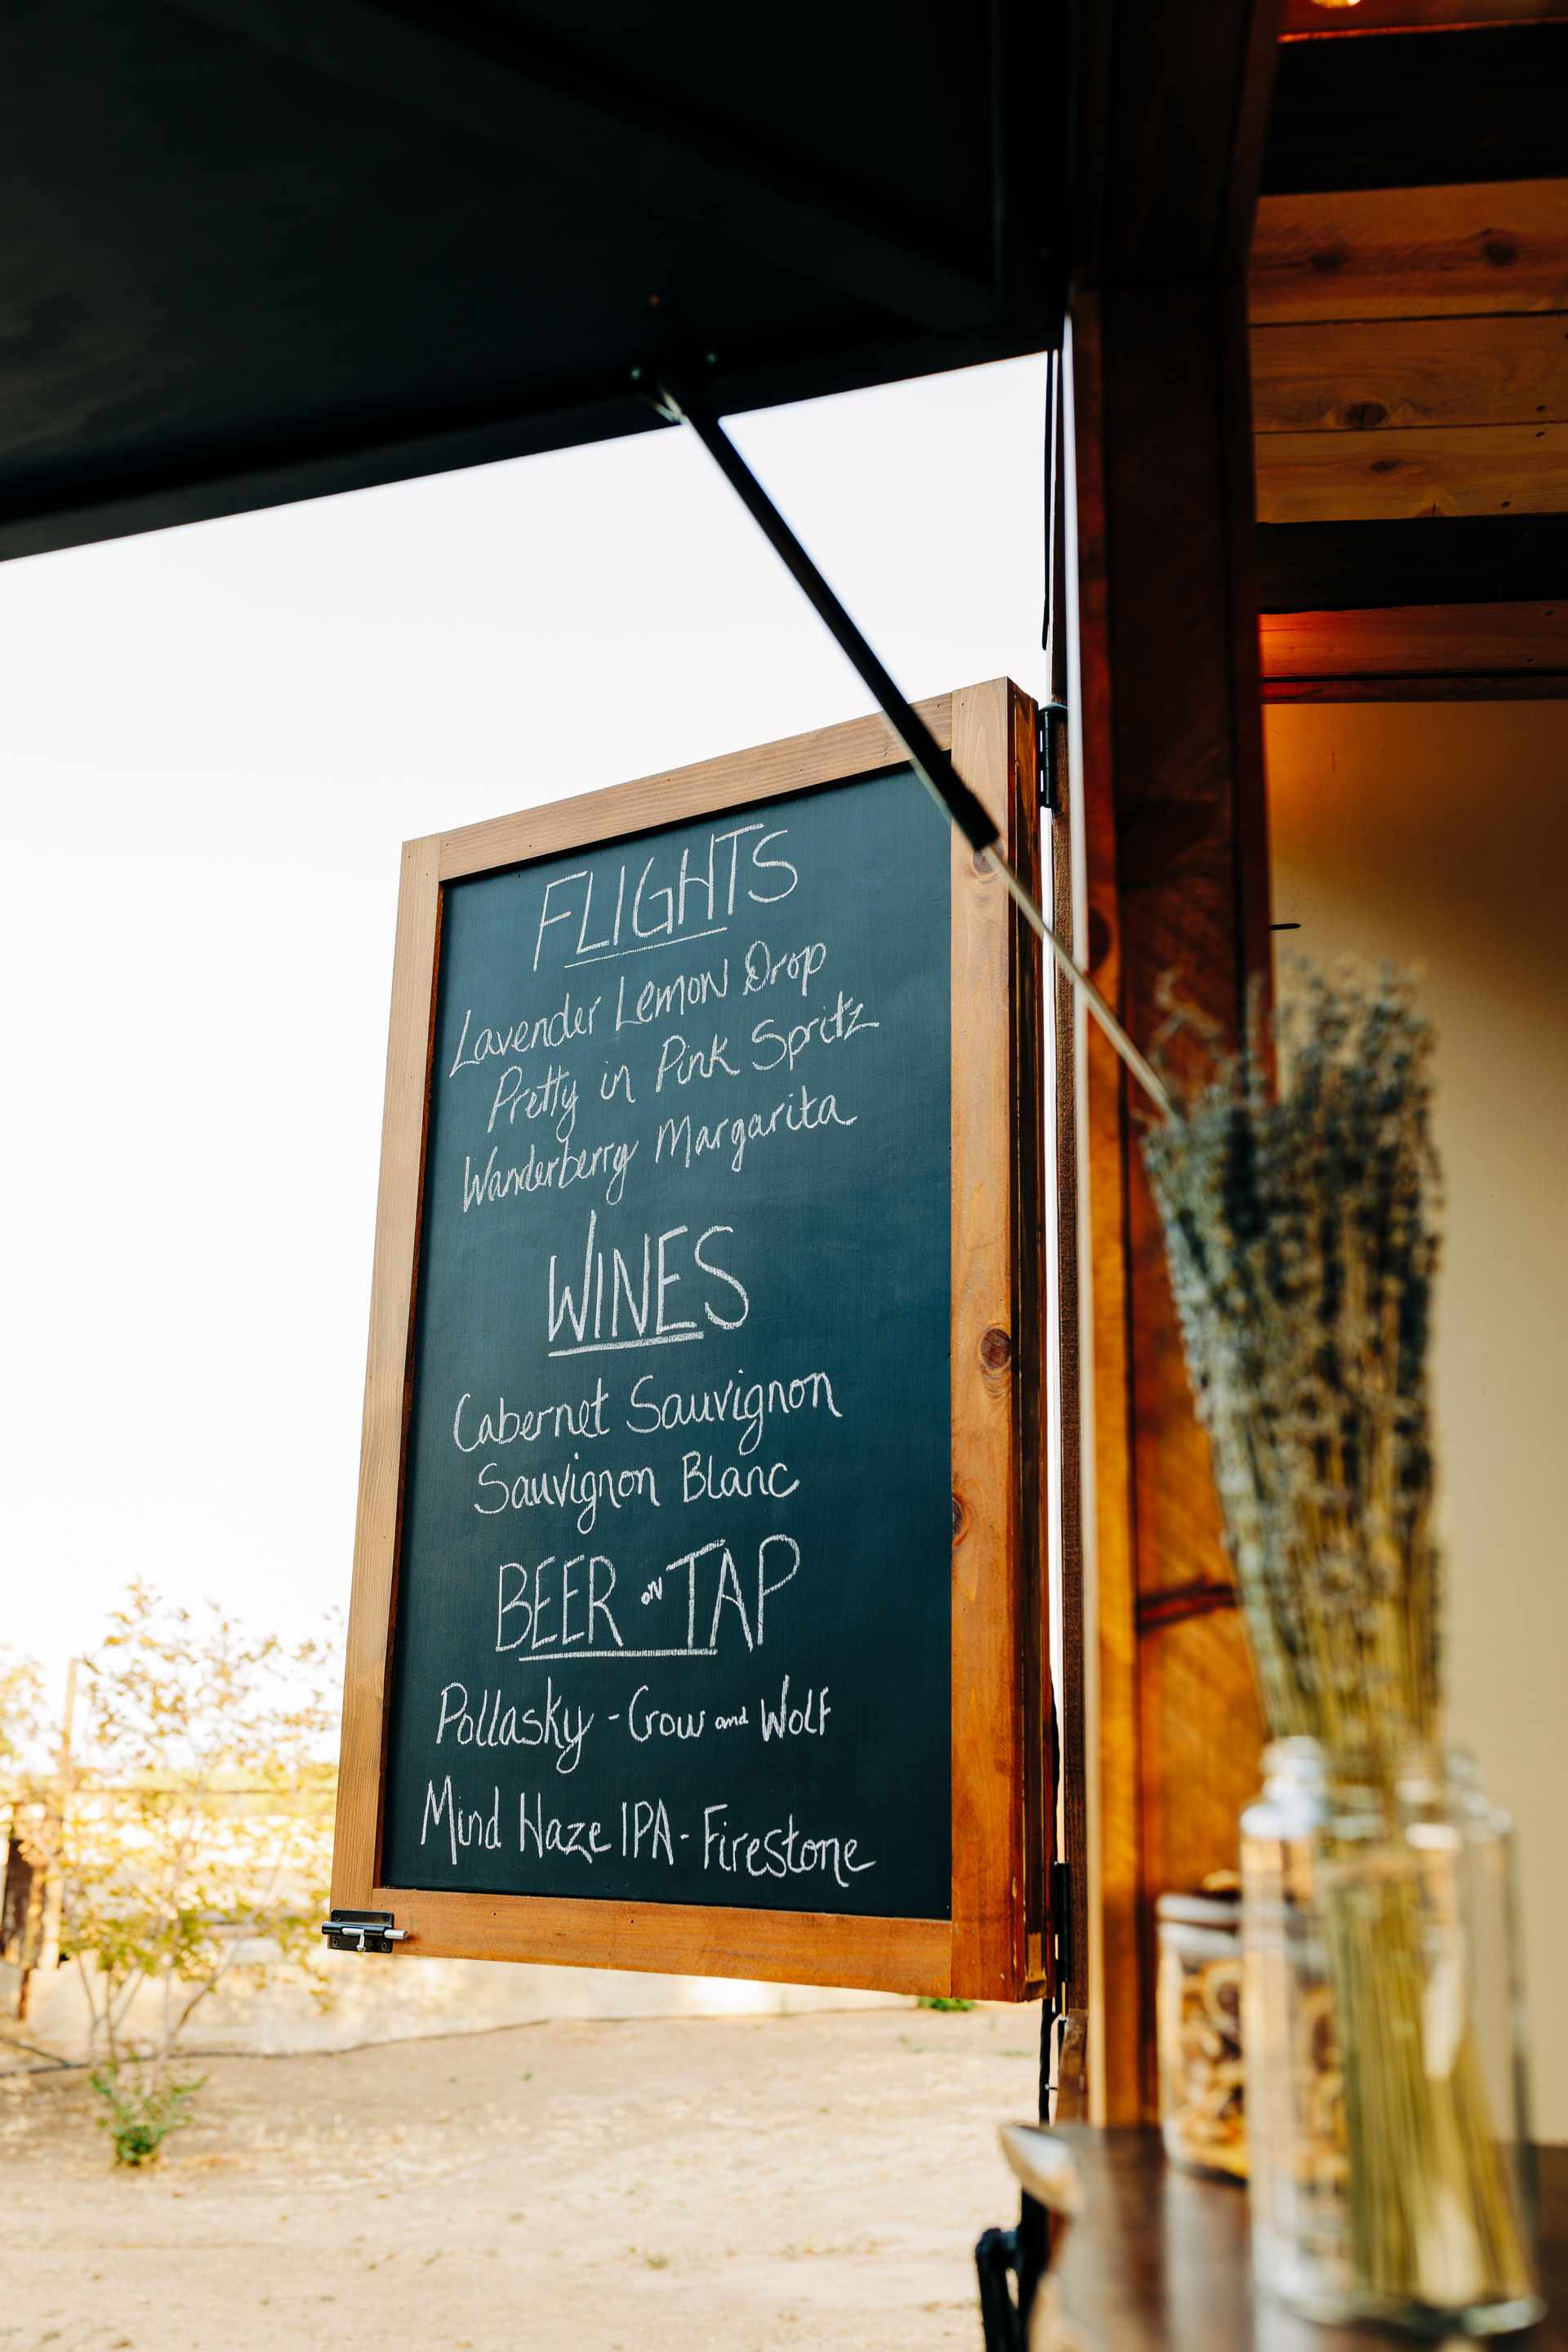 FLIGHTS
Lavender Lemon Drop
Pretty in Pink Spritz
Wanderberry Margarita
WINES
Cabernet Sauvignon
Sauvignon Blanc
BEER on TAP
Pollasky - Crow and Wolf
Mind Haze IPA - Firestone